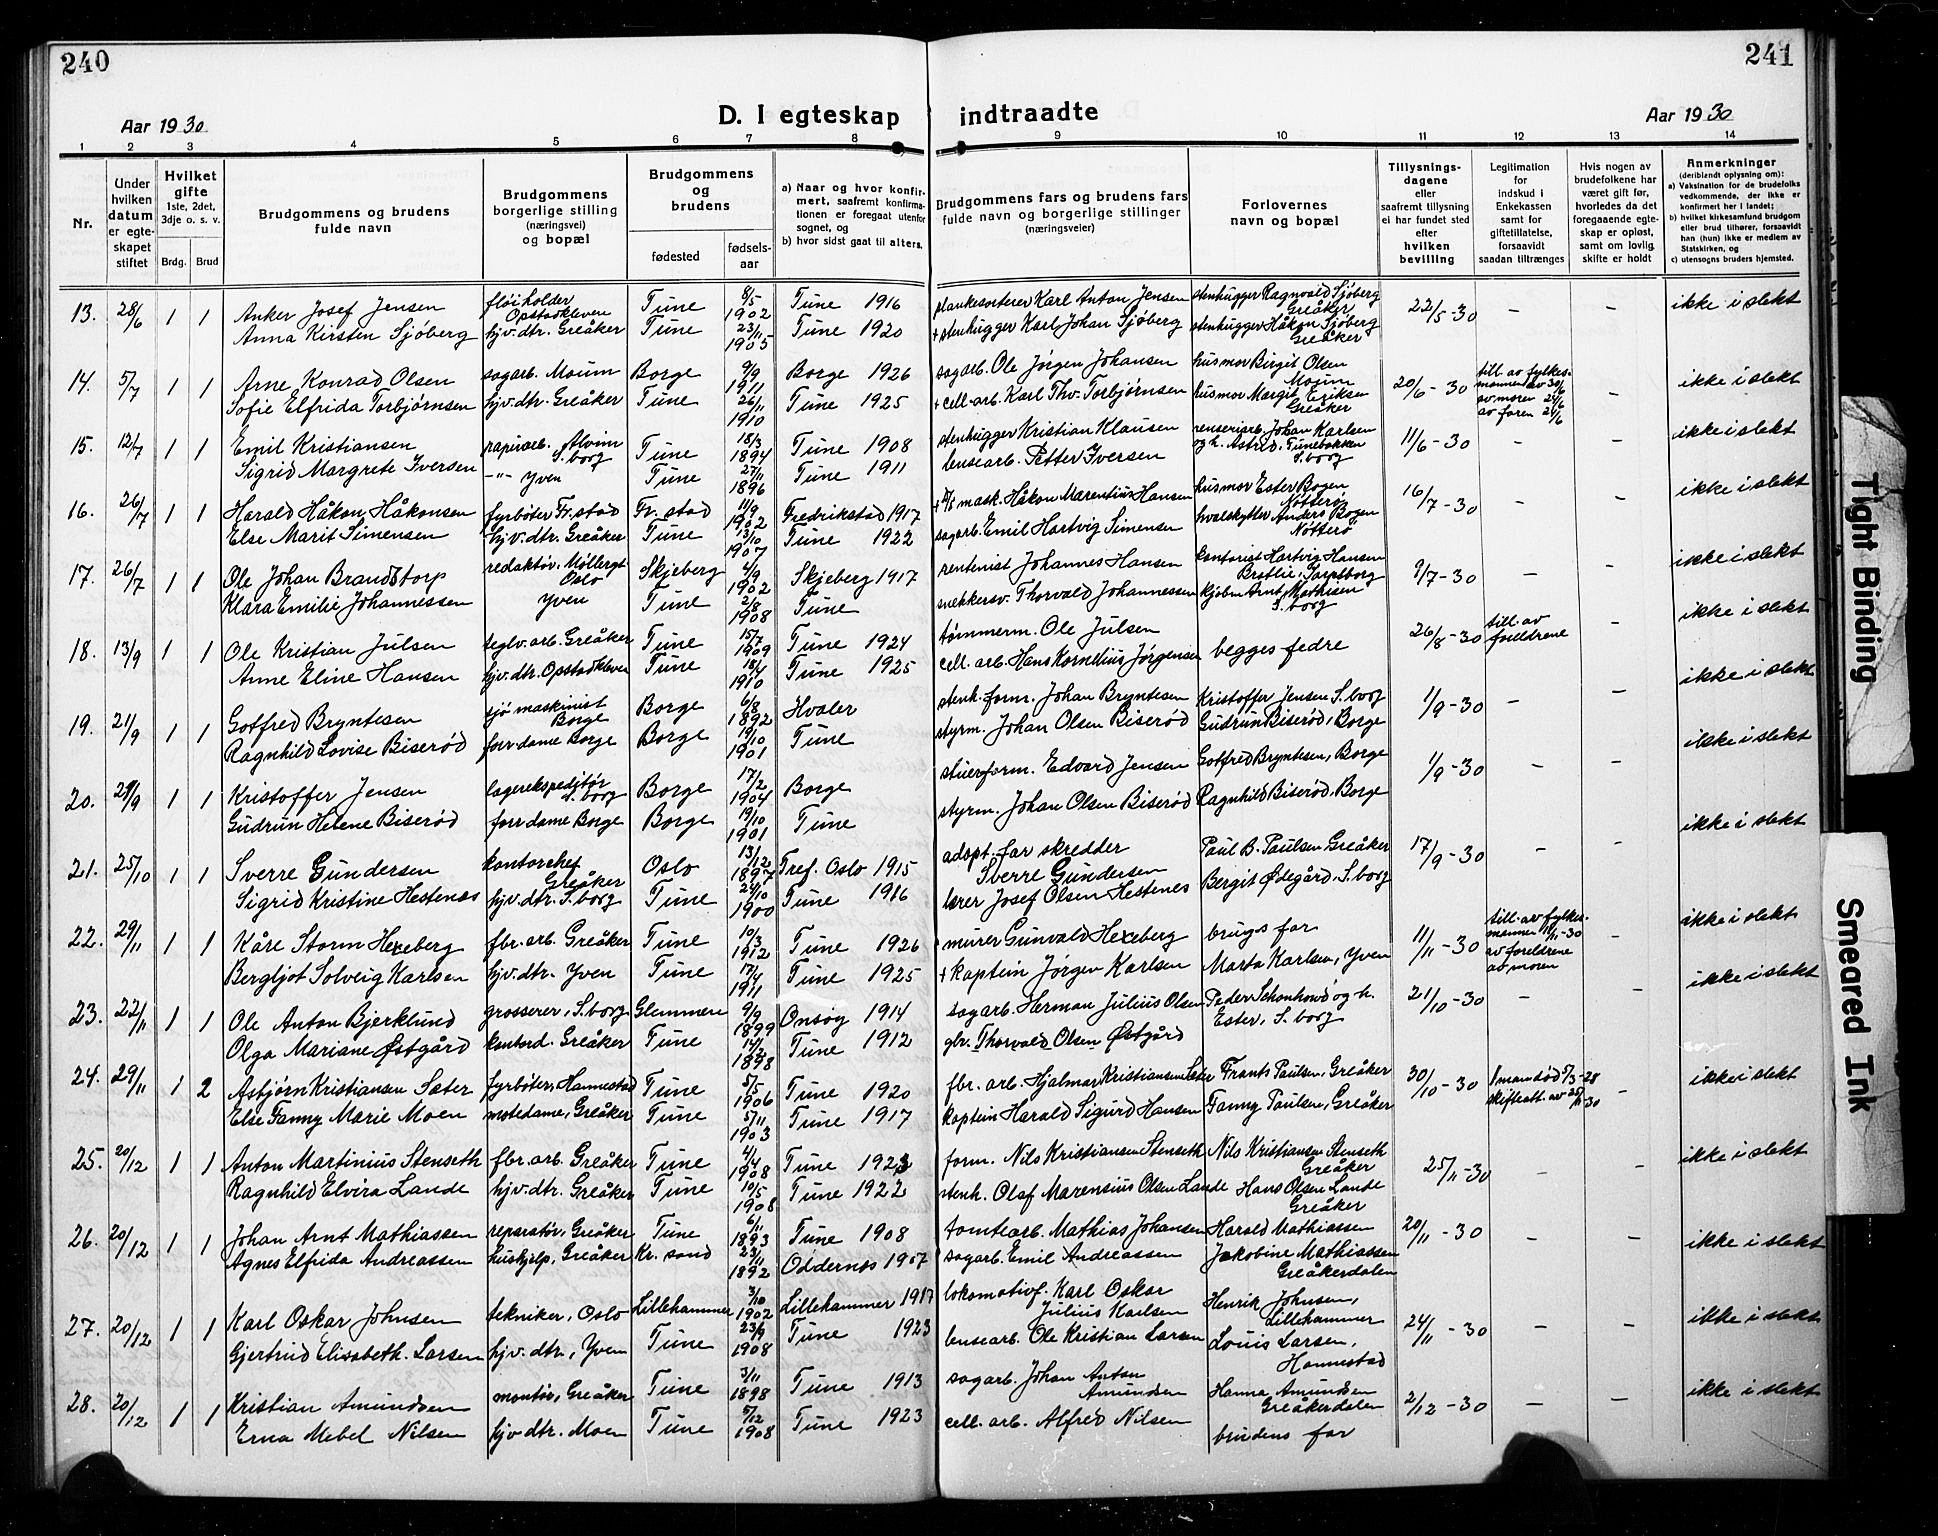 240
241
D. I egteskap indtraadte
Aar 1930
Aar 1930
1 2 3 4 5 6 7 8 9 10 11 12 13 14
Nr.
Under hvilken datum er egteskapet stiftet
Hvilket gifte 1ste, 2det, 3dje o. s. v.
Brdg. Brud
Brudgommens og brudens fulde navn
Brudgommens borgerlige stilling (næringsvei) og bopæl
Brudgommens og brudens
fødested fødsels-aar
a) Naar og hvor konfirmert, saafremt konfirmationen er foregaat utenfor sognet, og
b) hvor sidst gaat til alters.
Brudgommens fars og brudens fars fulde navn og borgerlige stillinger (næringsveier)
Forlovernes navn og bopæl
Tillysningsdagene eller saafremt tillysning ei har fundet sted efter hvilken bevilling
Legitimation for indskud i Enkekassen samt for giftetillatelse, forsaavidt saadan tiltrænges
Hvis nogen av brudefolkene har været gift før, hvorledes da det foregaaende egteskap er opløst, samt om lovlig skifte er holdt
Anmerkninger (deriblandt oplysning om):
a) Vaksination for de brudefolks vedkommende, der ikke er konfirmert her i landet;
b) hvilket kirkesamfund brudgom eller brud tilhører, forsaavidt han (hun) ikke er medlem av Statskirken, og
c) utensogns bruders hjemsted.
13. 28/6 1 1 Anker Josef Jensen fløiholder Opstadkleven Tune 8/5 1902 Tune 1916 plankesorterer Karl Anton Jensen stenhugger Ragnvald Sjöberg Greåker 22/5-30 — — ikke i slekt
Anna Kirsten Sjöberg hjv. dtr. Greåker Tune 23/11 1905 Tune 1920 + stenhugger Karl Johan Sjöberg stenhugger Håkon Sjöberg Greåker
14. 5/7 1 1 Arne Konrad Olsen sagarb. Moum Borge 9/9 1911 Borge 1926 sagarb. Ole Jörgen Johansen husmor Birgit Olsen Moum 20/6-30 till. av fylkesmannen av 30/6 av moren 24/6 av faren 24/6 — ikke i slekt
Sofie Elfrida Torbjørnsen hjv. dtr. Greåker Tune 26/11 1910 Tune 1925 + cell. arb. Karl Thv. Torbjørnsen husmor Margit Eriksen Greåker
15. 12/7 1 1 Emil Kristiansen papirarb. Alvim S.borg Tune 18/3 1894 Tune 1908 stenhugger Kristian Klausen renseriarb. Johan Karlsen og h. Astrid, Tunebakken S.borg 11/6-30 — — ikke i slekt
Sigrid Margrete Iversen -"- Yven Tune 27/11 1896 Tune 1911 lensearb. Petter Iversen
16. 26/7 1 1 Harald Håkon Håkonsen fyrböter Fr.stad Fr.stad 11/9 1902 Fredrikstad 1917 mask. Håkon Marentius Hansen husmor Ester Bogen Nötterö 16/7-30 — — ikke i slekt
Else Marit Simensen hjv. dtr. Greåker Tune 13/10 1907 Tune 1922 sagarb. Emil Hartvig Simensen hvalskytter Anders Bogen Nötterö
17. 26/7 1 1 Ole Johan Brandstorp redaktör. Møllergt Oslo Skjeberg 4/9 1902 Skjeberg 1917 rentenist Johannes Hansen kontorist Hartvig Hansen Bratlie, Sarpsborg 9/7-30 — — ikke i slekt
Klara Emilie Johannessen Yven Tune 2/8 1908 Tune snekkersv. Thorvald Johannessen kjøbm Arnt Mathisen S.borg
ikke i slekt
18. 13/9 1 1 Ole Kristian Julsen teglv. arb. Greåker Tune 15/7 1909 Tune 1924 tømmerm. Ole Julsen begges fedre 26/8-30 till. av foreldrene —
Anne Eline Hansen hjv. dtr. Opstadkleven Tune 18/4 1910 Tune 1925 cell. arb. Hans Kornelius Jørgensen
ikke i slekt
19. 21/9 1 1 Gotfred Bryntesen sjö maskinist Borge Borge 6/8 1892 Hvaler stenh. form. Johan Bryntesen Kristoffer Jensen S.borg 1/9-30 — —
Ragnhild Lovise Biseröd forr.dame Borge Borge 19/10 1901 Tune styrm. Johan Olsen Biseröd Gudrun Biseröd, Borge
ikke i slekt
20. 21/9 1 1 Kristoffer Jensen lagerekspeditør S.borg Borge 17/2 1904 Borge stuerform. Edvard Jensen Gotfred Bryntesen, Borge 1/9-30 — —
Gudrun Helene Biseröd forr.dame Borge Borge 19/10 1901 Tune styrm. Johan Olsen Biseröd Ragnhild Biseröd, Borge
ikke i slekt
21. 25/10 1 1 Sverre Gundersen kontorchef Greåker Oslo 13/12 1897 Tref. Oslo 1915 adopt. far skredder Sverre Gundersen Paul B. Paulsen, Greåker 17/9-30 — —
Sigrid Kristine Hestenes hjv. dtr. S.borg Tune 24/10 1900 Tune 1916 lærer Josef Olsen Hestenes Bergit Ødegård, S.borg
22. 29/11 1 1 Kåre Storm Hexeberg fbr. arb. Greåker Tune 10/3 1912 Tune 1926 murer Gunvald Hexeberg brugs far 11/11-30 till. av fylkesmannen 18/11-30 av foreldrene av moren — ikke i slekt
Bergljot Solveig Karlsen hjv. dtr. Yven Tune 17/4 1911 Tune 1925 + kaptein Jörgen Karlsen Marta Karlsen, Yven
ikke i slekt
23. 22/11 1 1 Ole Anton Bjerklund grosserer, S.borg Glemmen 9/9 1899 Onsøy 1914 sagarb. Herman Julius Olsen Peder Schonhowd og h. Ester, S.borg 21/10-30 — —
Olga Mariane Østgård kontord. Greåker Tune 14/2 1898 Tune 1912 gbr. Thorvald Olsen Østgård
24. 29/11 1 2 Asbjørn Kristiansen Sæter fyrböter, Hannestad Tune 5/5 1906 Tune 1920 fbr. arb. Hjalmar Kristiansen Sæter Frants Paulsen, Greåker 30/10-30 1 man död 5/3-28 skifteatt. av 25/11-30 — ikke i slekt
Else Fanny Marie Moen motedame, Greåker Tune 5/11 1903 Tune 1917 kaptein Harald Sigurd Hansen Fanny Paulsen, Greåker
25. 20/12 1 1 Anton Martinius Stenseth fbr. arb. Greåker Tune 4/4 1908 Tune 1923 form. Nils Kristiansen Stenseth Nils Kristiansen Stenseth Greåker 25/11-30 — — ikke i slekt
Ragnhild Elvira Lande hjv. dtr. Greåker Tune 10/5 1908 Tune 1922 stenh. Olaf Marensius Olsen Lande Hans Olsen Lande Greåker
26. 20/12 1 1 Johan Arnt Mathiassen reparatør, Greåker Tune 6/11 1893 Tune 1908 tomtearb. Mathias Johansen Harald Mathiassen 20/11-30 — — ikke i slekt
Agnes Elfrida Andreassen hushjelp, Greåker Kr. sand 23/11 1892 Oddernes 1907 sagarb. Emil Andreassen Jakobine Mathiassen Greåkerdalen
27. 20/12 1 1 Karl Oskar Johnsen tekniker, Oslo Lillehammer 3/10 1902 Lillehammer 1917 lokomotivf. Karl Oskar Julius Karlsen Henrik Johnsen, Lillehammer 24/11-30 — — ikke i slekt
Gjertrud Elisabeth Larsen hjv. dtr, Yven Tune 23/9 1908 Tune 1923 lensearb. Ole Kristian Larsen Louis Larsen, Hannestad
28. 20/12 1 1 Kristian Amundsen montør, Greåker Tune 3/11 1898 Tune 1913 sagarb. Johan Anton Amundsen Hanna Amundsen Greåkerdalen 2/12-30 — — ikke i slekt
Erna Mebel Nilsen hjv dtr. Moen Tune 5/12 1908 Tune 1923 cell. arb. Alfred Nilsen brudens far
Tight Binding
Smeared Ink